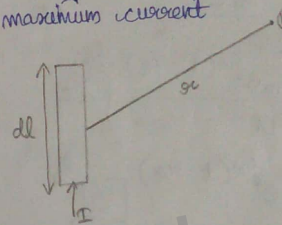 maximum current
dl
r
I